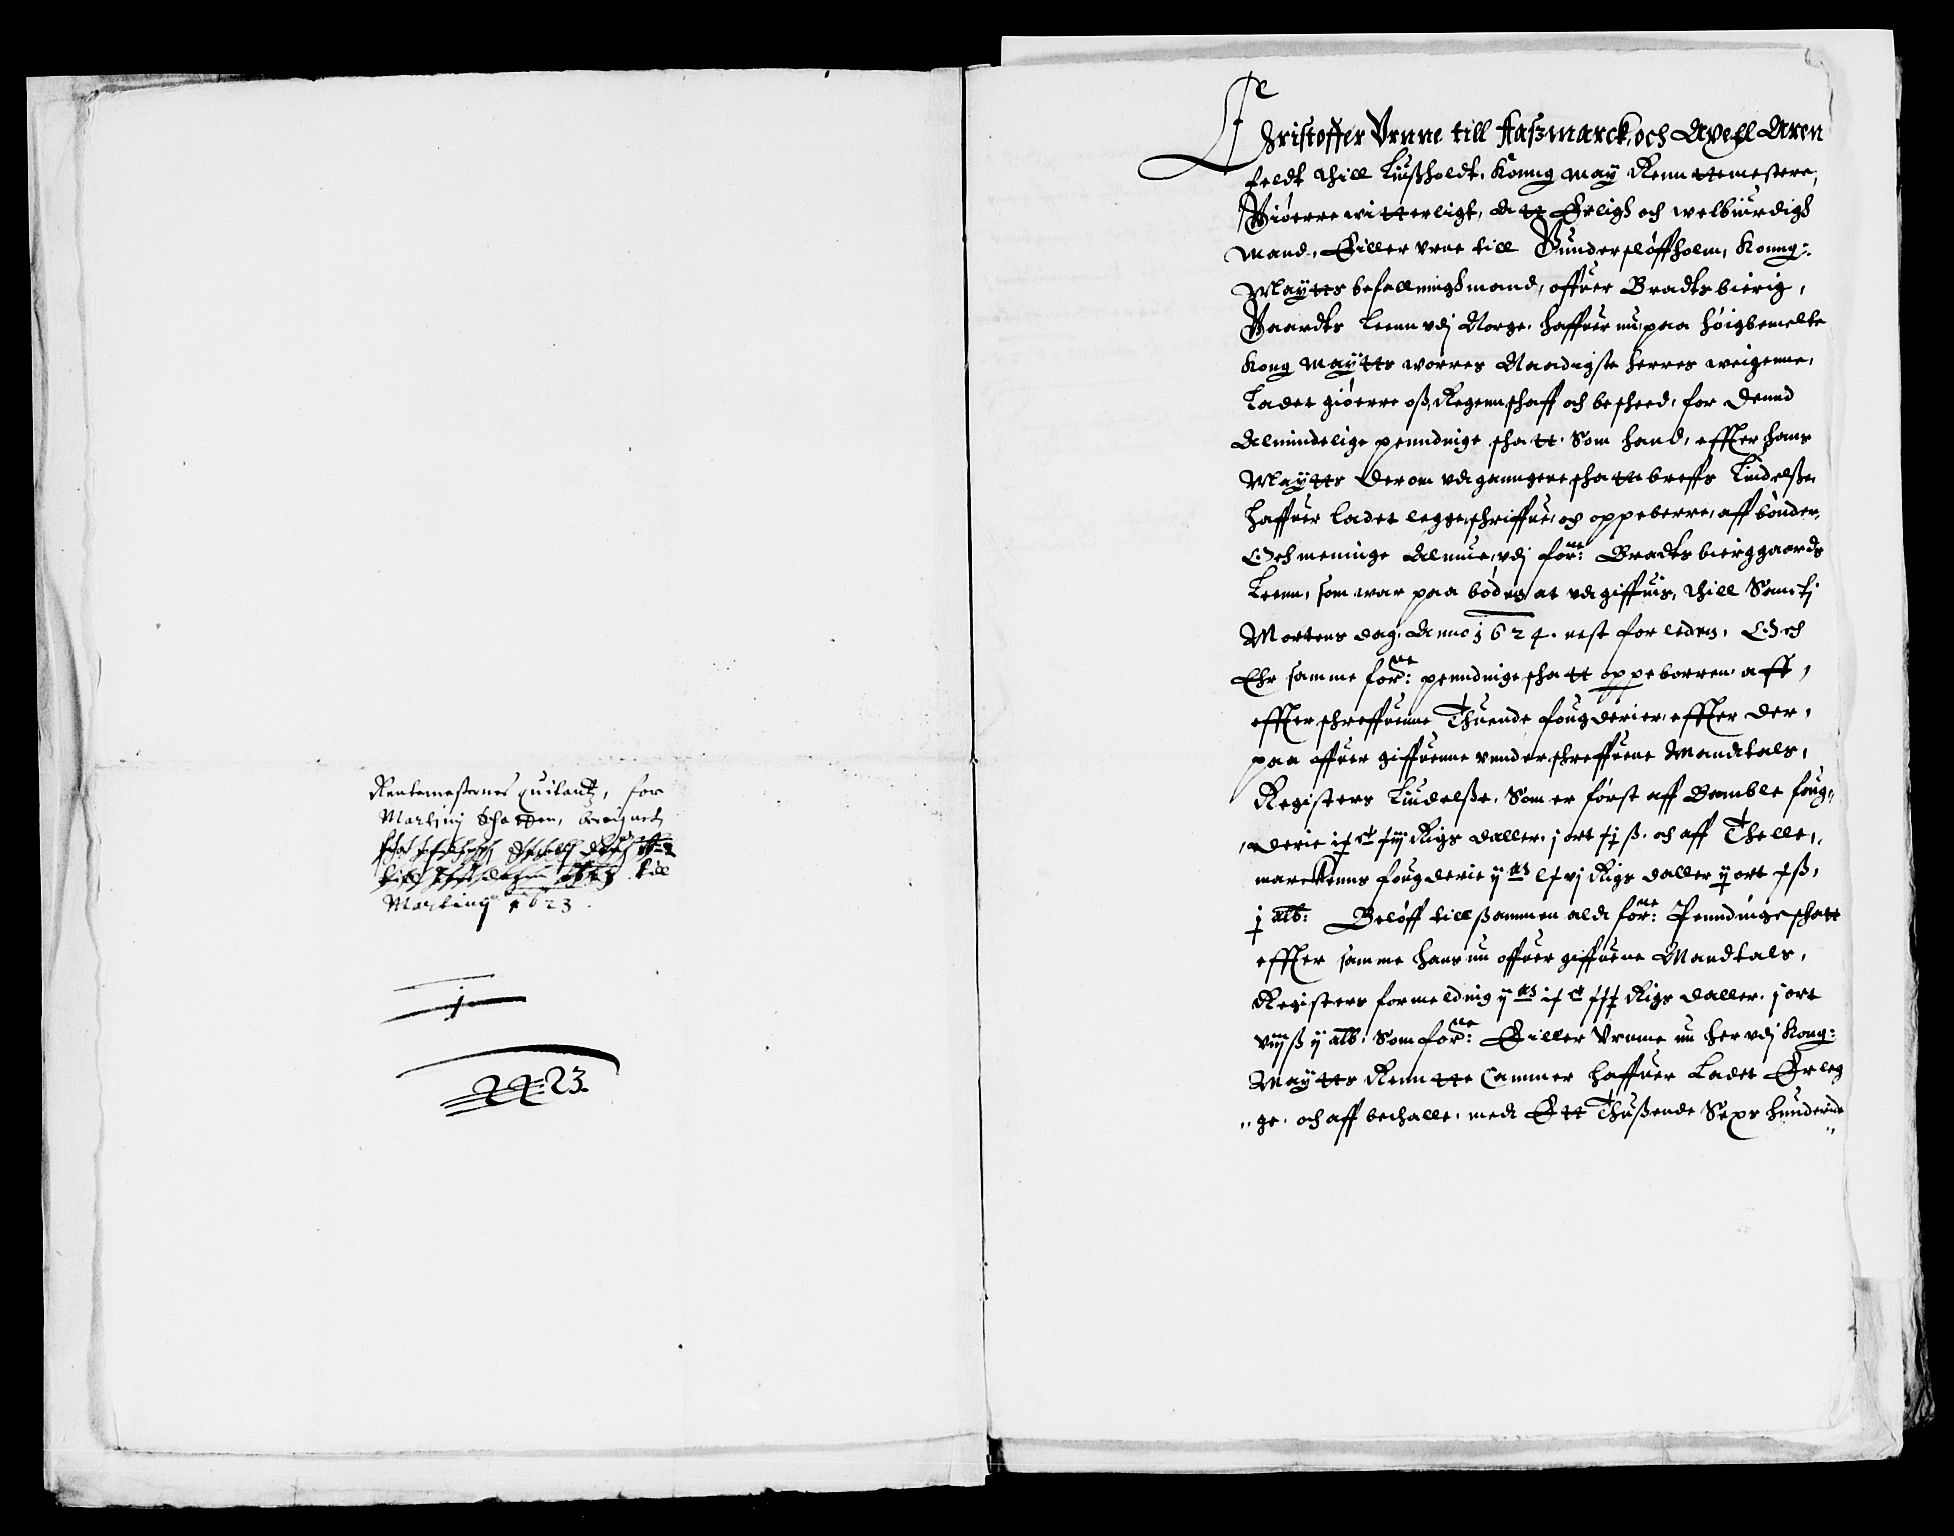 Rentemesternes quitantz, for
Martinj Schatten,
till
Martinj 1623.
j
2223.
Christoffer Vrnne till Aaszmarck, och Axell Aren
feldt thill Lußholdt, Konng: May Renntemestere,
Giøerre witterligt, att Erligh och welbiurdigh
Mand, Eiller vrne till Gunderslöffholm, Konng:
Maytts befallninghmand, offuer Bradtsbierig,
Gaardts leenn vdj Norge, haffuer nu paa høigbemelte
Kong Maytts worres Naadigste herres weigenne,
Ladet giøerre oß Regennschaff och bescheed, for dennd
Almindelige penndnige schatt, Som hand, effter hans
Maytts derom vdganngene schattebreffs liudelße,
haffuer ladet legge, schriffue, och oppeberre, aff bønder,
Och meninge Almue, vdj forne: Bradtsbierggaards
Leenn, som war paa bøden at vdgiffuis, thill Sanctj
Mortens dag, Anno 1624. nest forleden, Och
Ehr samme forne: penndnige schatt oppeborren aff,
effter schreffuenne Thuende fougderier, effter der,
paa offuer giffuenne vnderschreffuene Mandtals,
Registers liudelße, Som er først aff Bamble foug,,
derie Rigs daller, j ort ß. och aff Thelle,
marckenns fougderie Rigs daller ort ß,
j alb: Beløff till sammen aldt forne: Penndnige schatt
effter samme hans nu offuer giffuene Mandtals,
Registers formeldnig Rigs daller, j ort
viij ß ij alb: Som forne: Eiller Vrnne nu her vdj Kong:
Maytts Renntte Cammer haffuer ladet Erleg
,, ge, och aff bethalle, med Ett Thußende Sexs hunderde